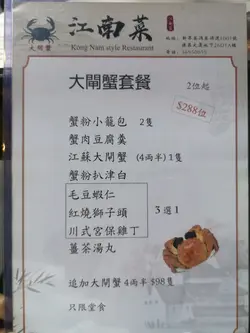 江南菜
大閘蟹
Kong Nam style Restaurant
大閘蟹套餐
2位起
$288位
蟹粉小籠包 2隻
蟹肉豆腐羹
江蘇大閘蟹 (4両半) 1隻
蟹粉扒津白
毛豆蝦仁
紅燒獅子頭
川式宮保雞丁
3選1
薑茶湯丸
追加大閘蟹 4両半 $98隻
只限堂食